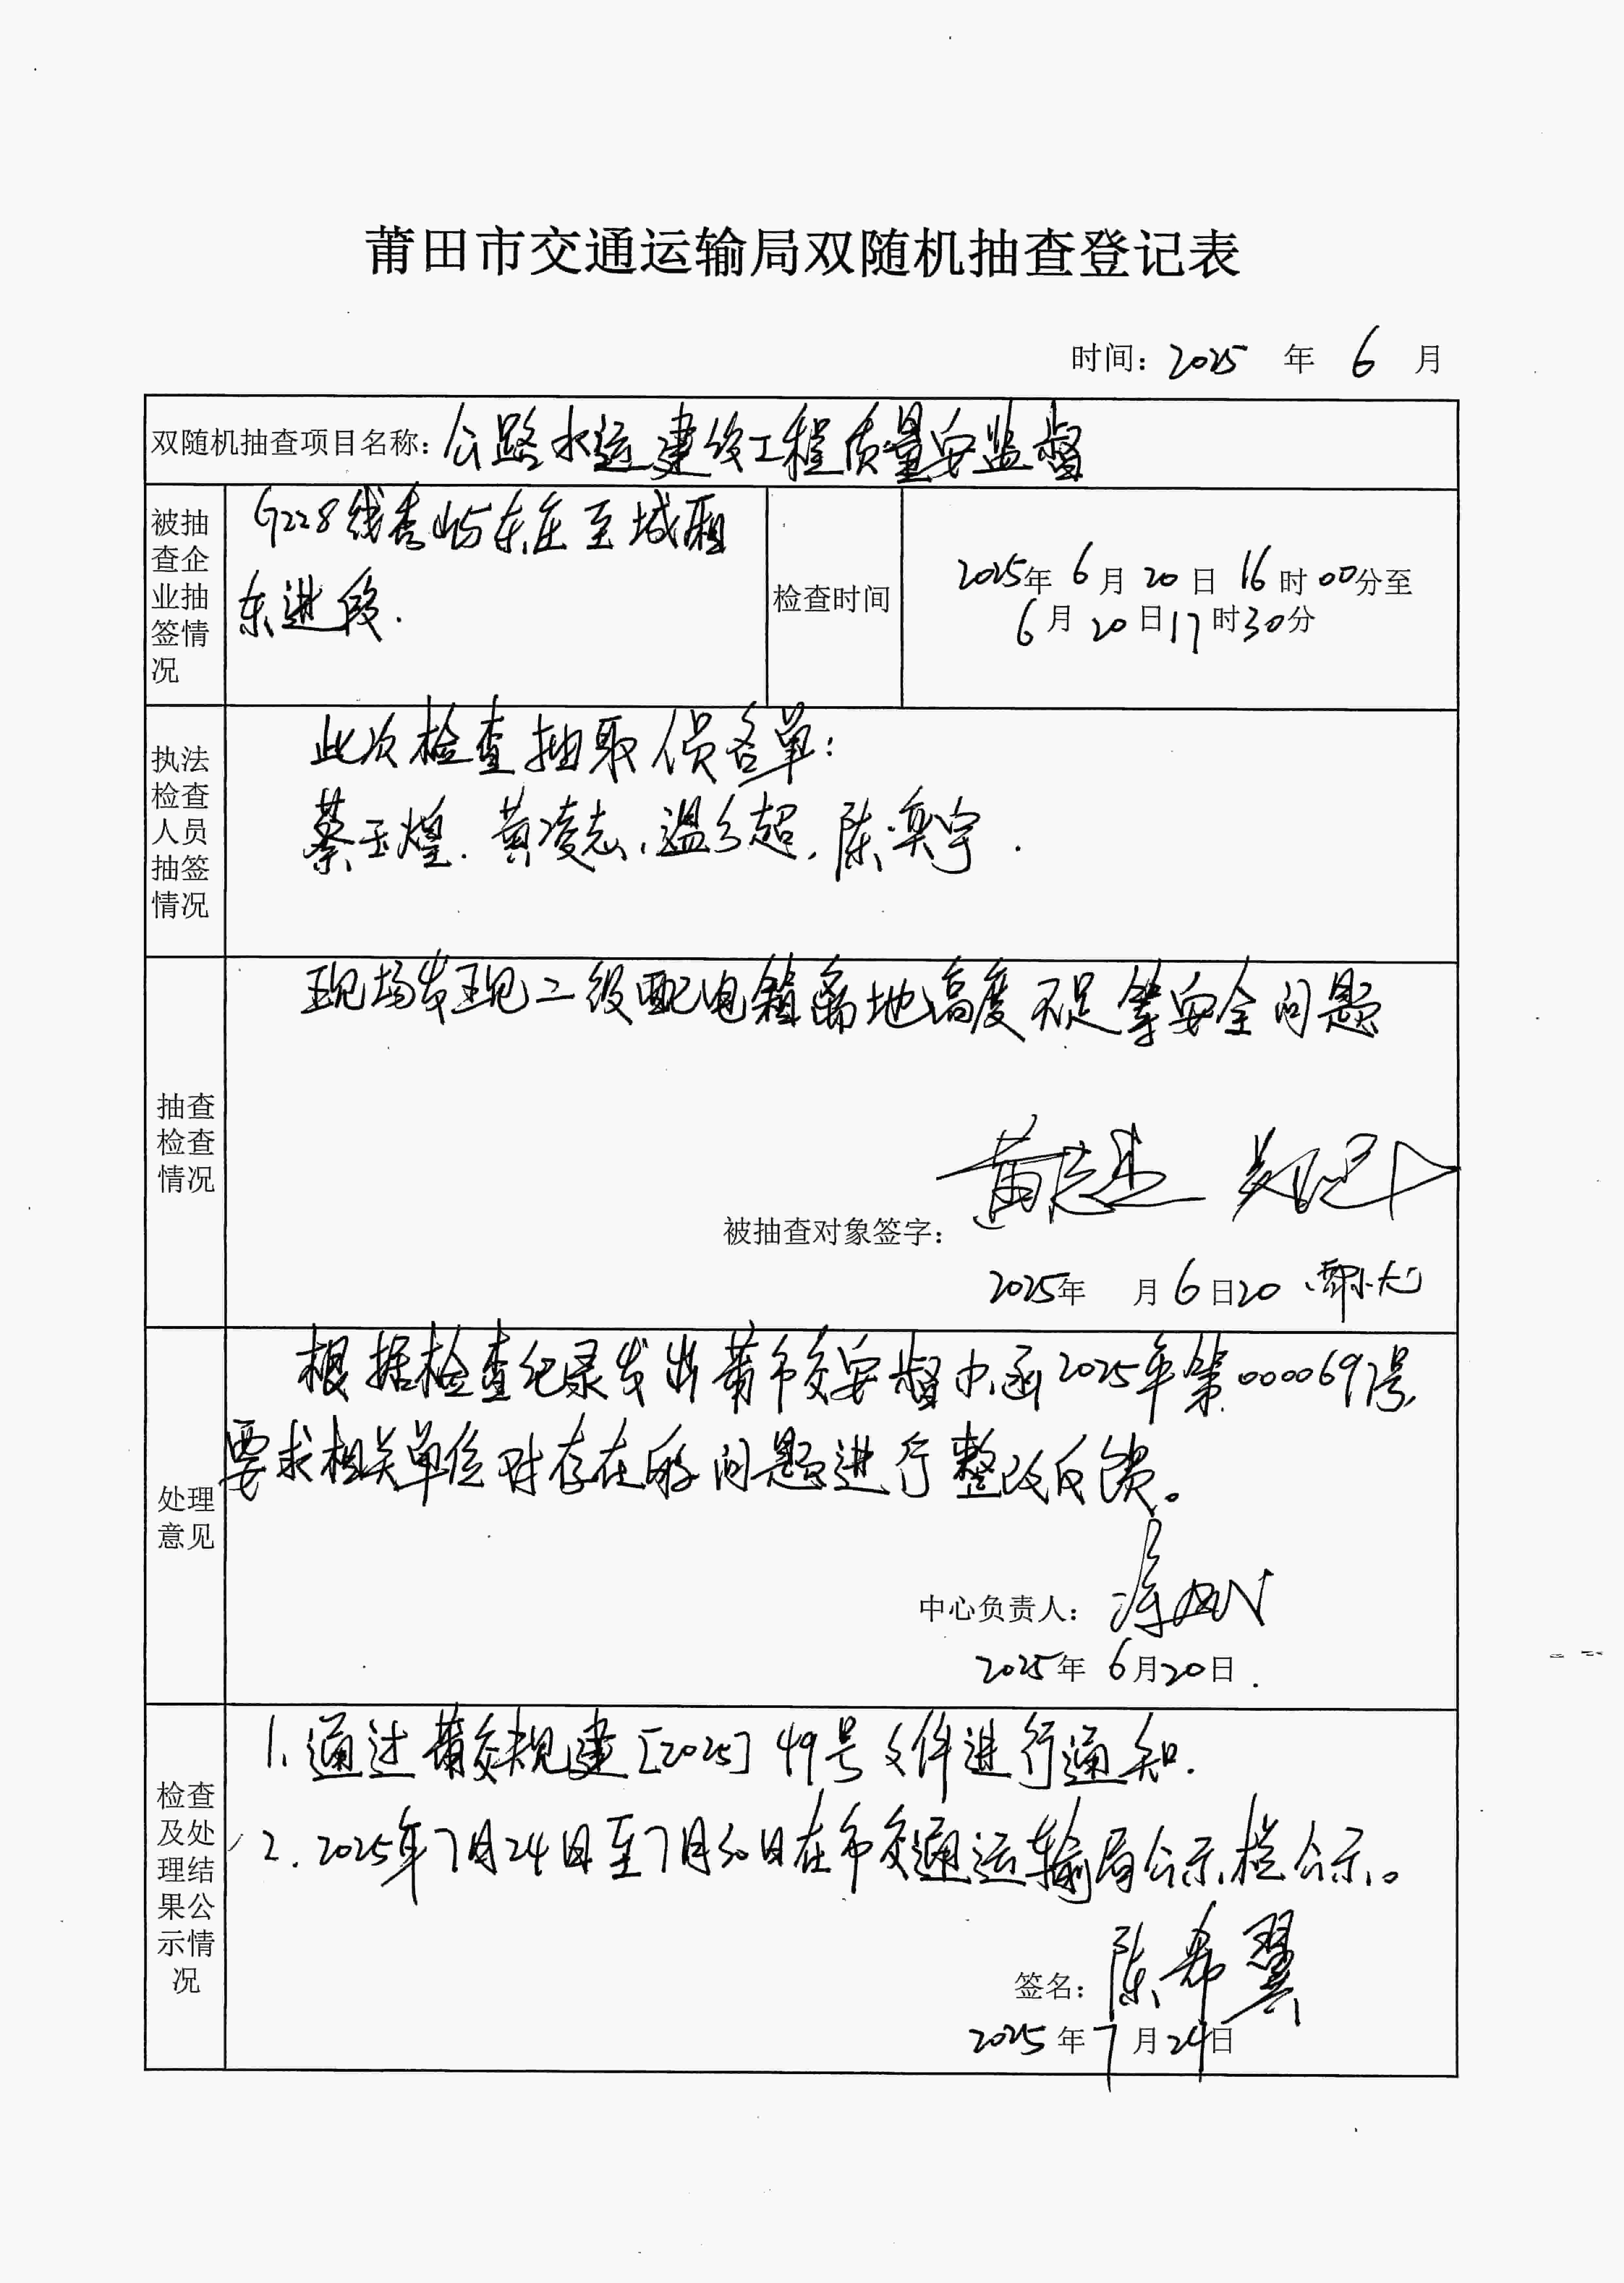 莆田市交通运输局双随机抽查登记表
时间：2025 年 6 月
双随机抽查项目名称：公路水运建设工程质量安监督
被抽查企业抽签情况
G228线秀屿东庄至城厢
东进段.
检查时间
2025年 6月 20日 16时 00分至
6月 20日17时30分
执法检查人员抽签情况
此次检查抽取人员名单：
蔡玉煌、黄凌志、温 超、陈奕宇.
抽查检查情况
现场发现二级配电箱离地高度不足等安全问题
被抽查对象签字：黄志
2025年 月6日20
处理意见
根据检查纪录发出莆市交安督办函2025年第0000697号，
要求相关单位对存在的问题进行整改反馈。
中心负责人：
2025年 6月20日.
检查及处理结果公示情况
1、通过莆交规建［2025］49号文件进行通知.
2．2025年7月24日至7月30日在市交通运输局公示栏公示。
签名：陈希翼
2025年7月24日